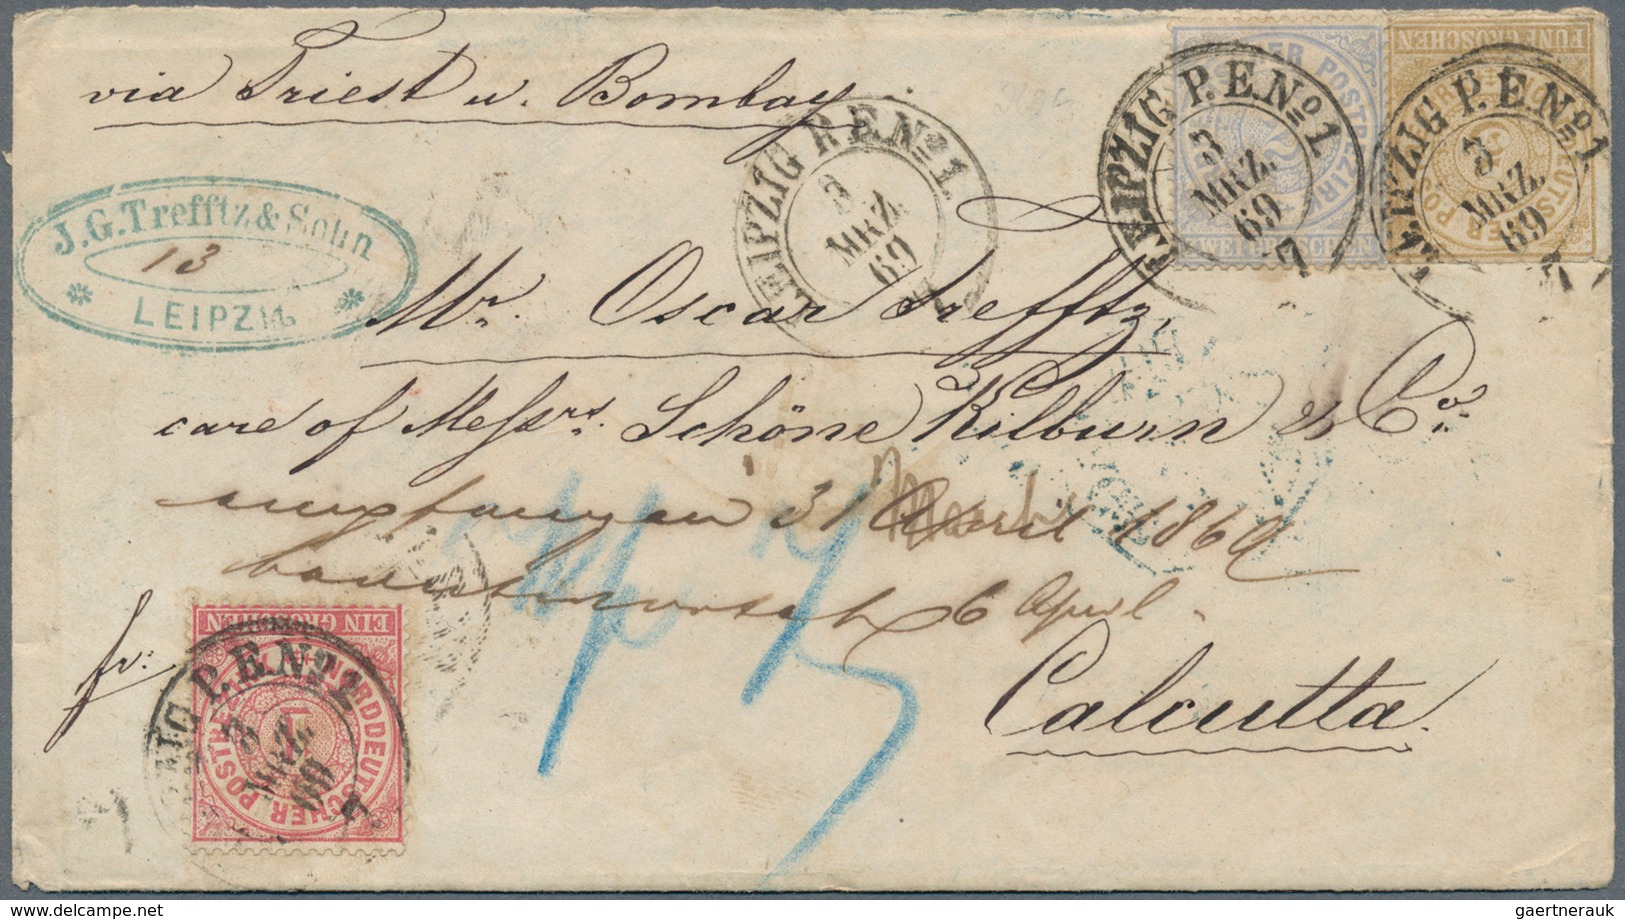 via Triest u. Bombay
FÜNF GROSCHEN
ZWEI GROSCHEN
LEIPZIG P.E.No. 1
3
MRZ.
69
7
LEIPZIG P.E.No. 1
3
MRZ.
69
7
LEIPZIG P.E.No. 1.
3
MRZ.
69
J.G. Trefftz & Sohn
13
LEIPZIG
Mr. Oscar Trefftz,
care of Messrs. Schöne Kilburn & Co.
empfangen 31 March 1869
beantwortet 6 April.
fr:
Calcutta.
EIN GROSCHEN
NORDDEUTSCHER POSTBEZIRK
1
ZIG P.E.No. 1
3
MRZ.
69
gaertnerauk